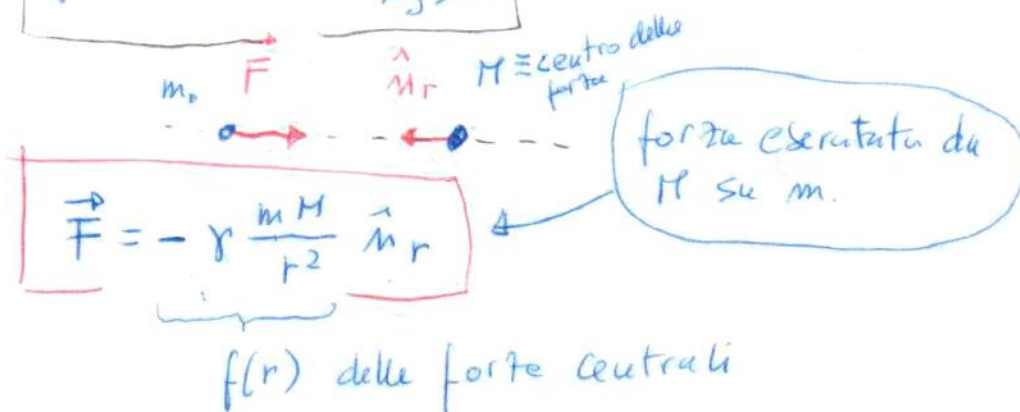 m. F⃗ n̂r M ≡ centro delle
forze
forza esercitata da
M su m.
F⃗ = - γ m M / r² n̂r
f(r) delle forze centrali